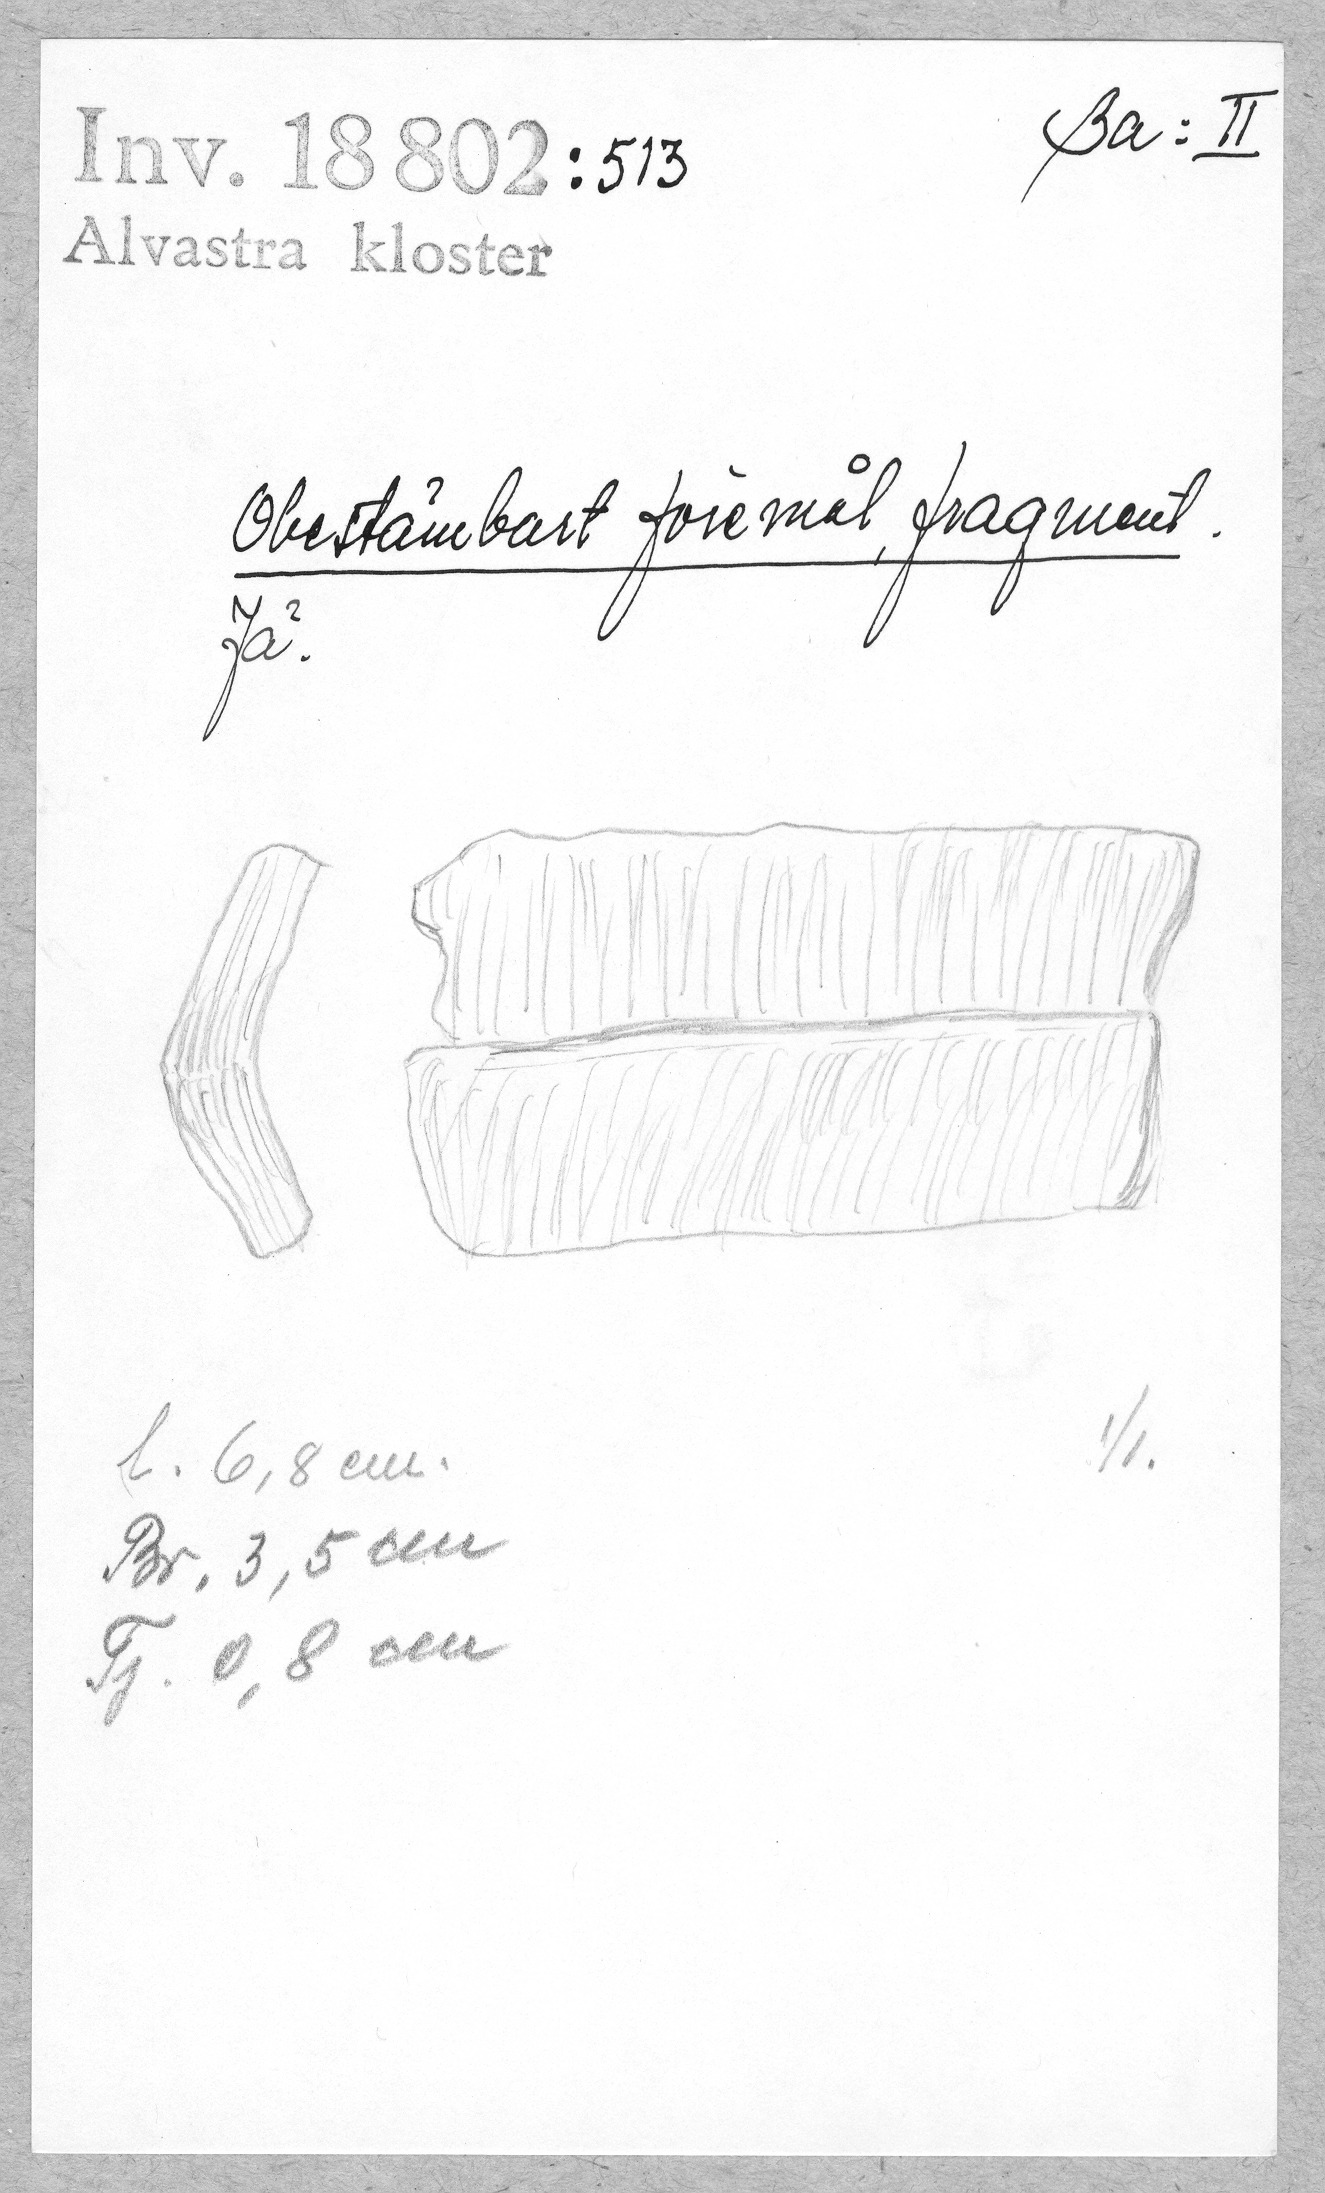 Inv. 18 802:513
Ba: II
Alvastra kloster
Obestämbart föremål, fragment.
Jä?
l. 6,8 cm.
1/1.
Br. 3,5 cm
Tj. 0,8 cm